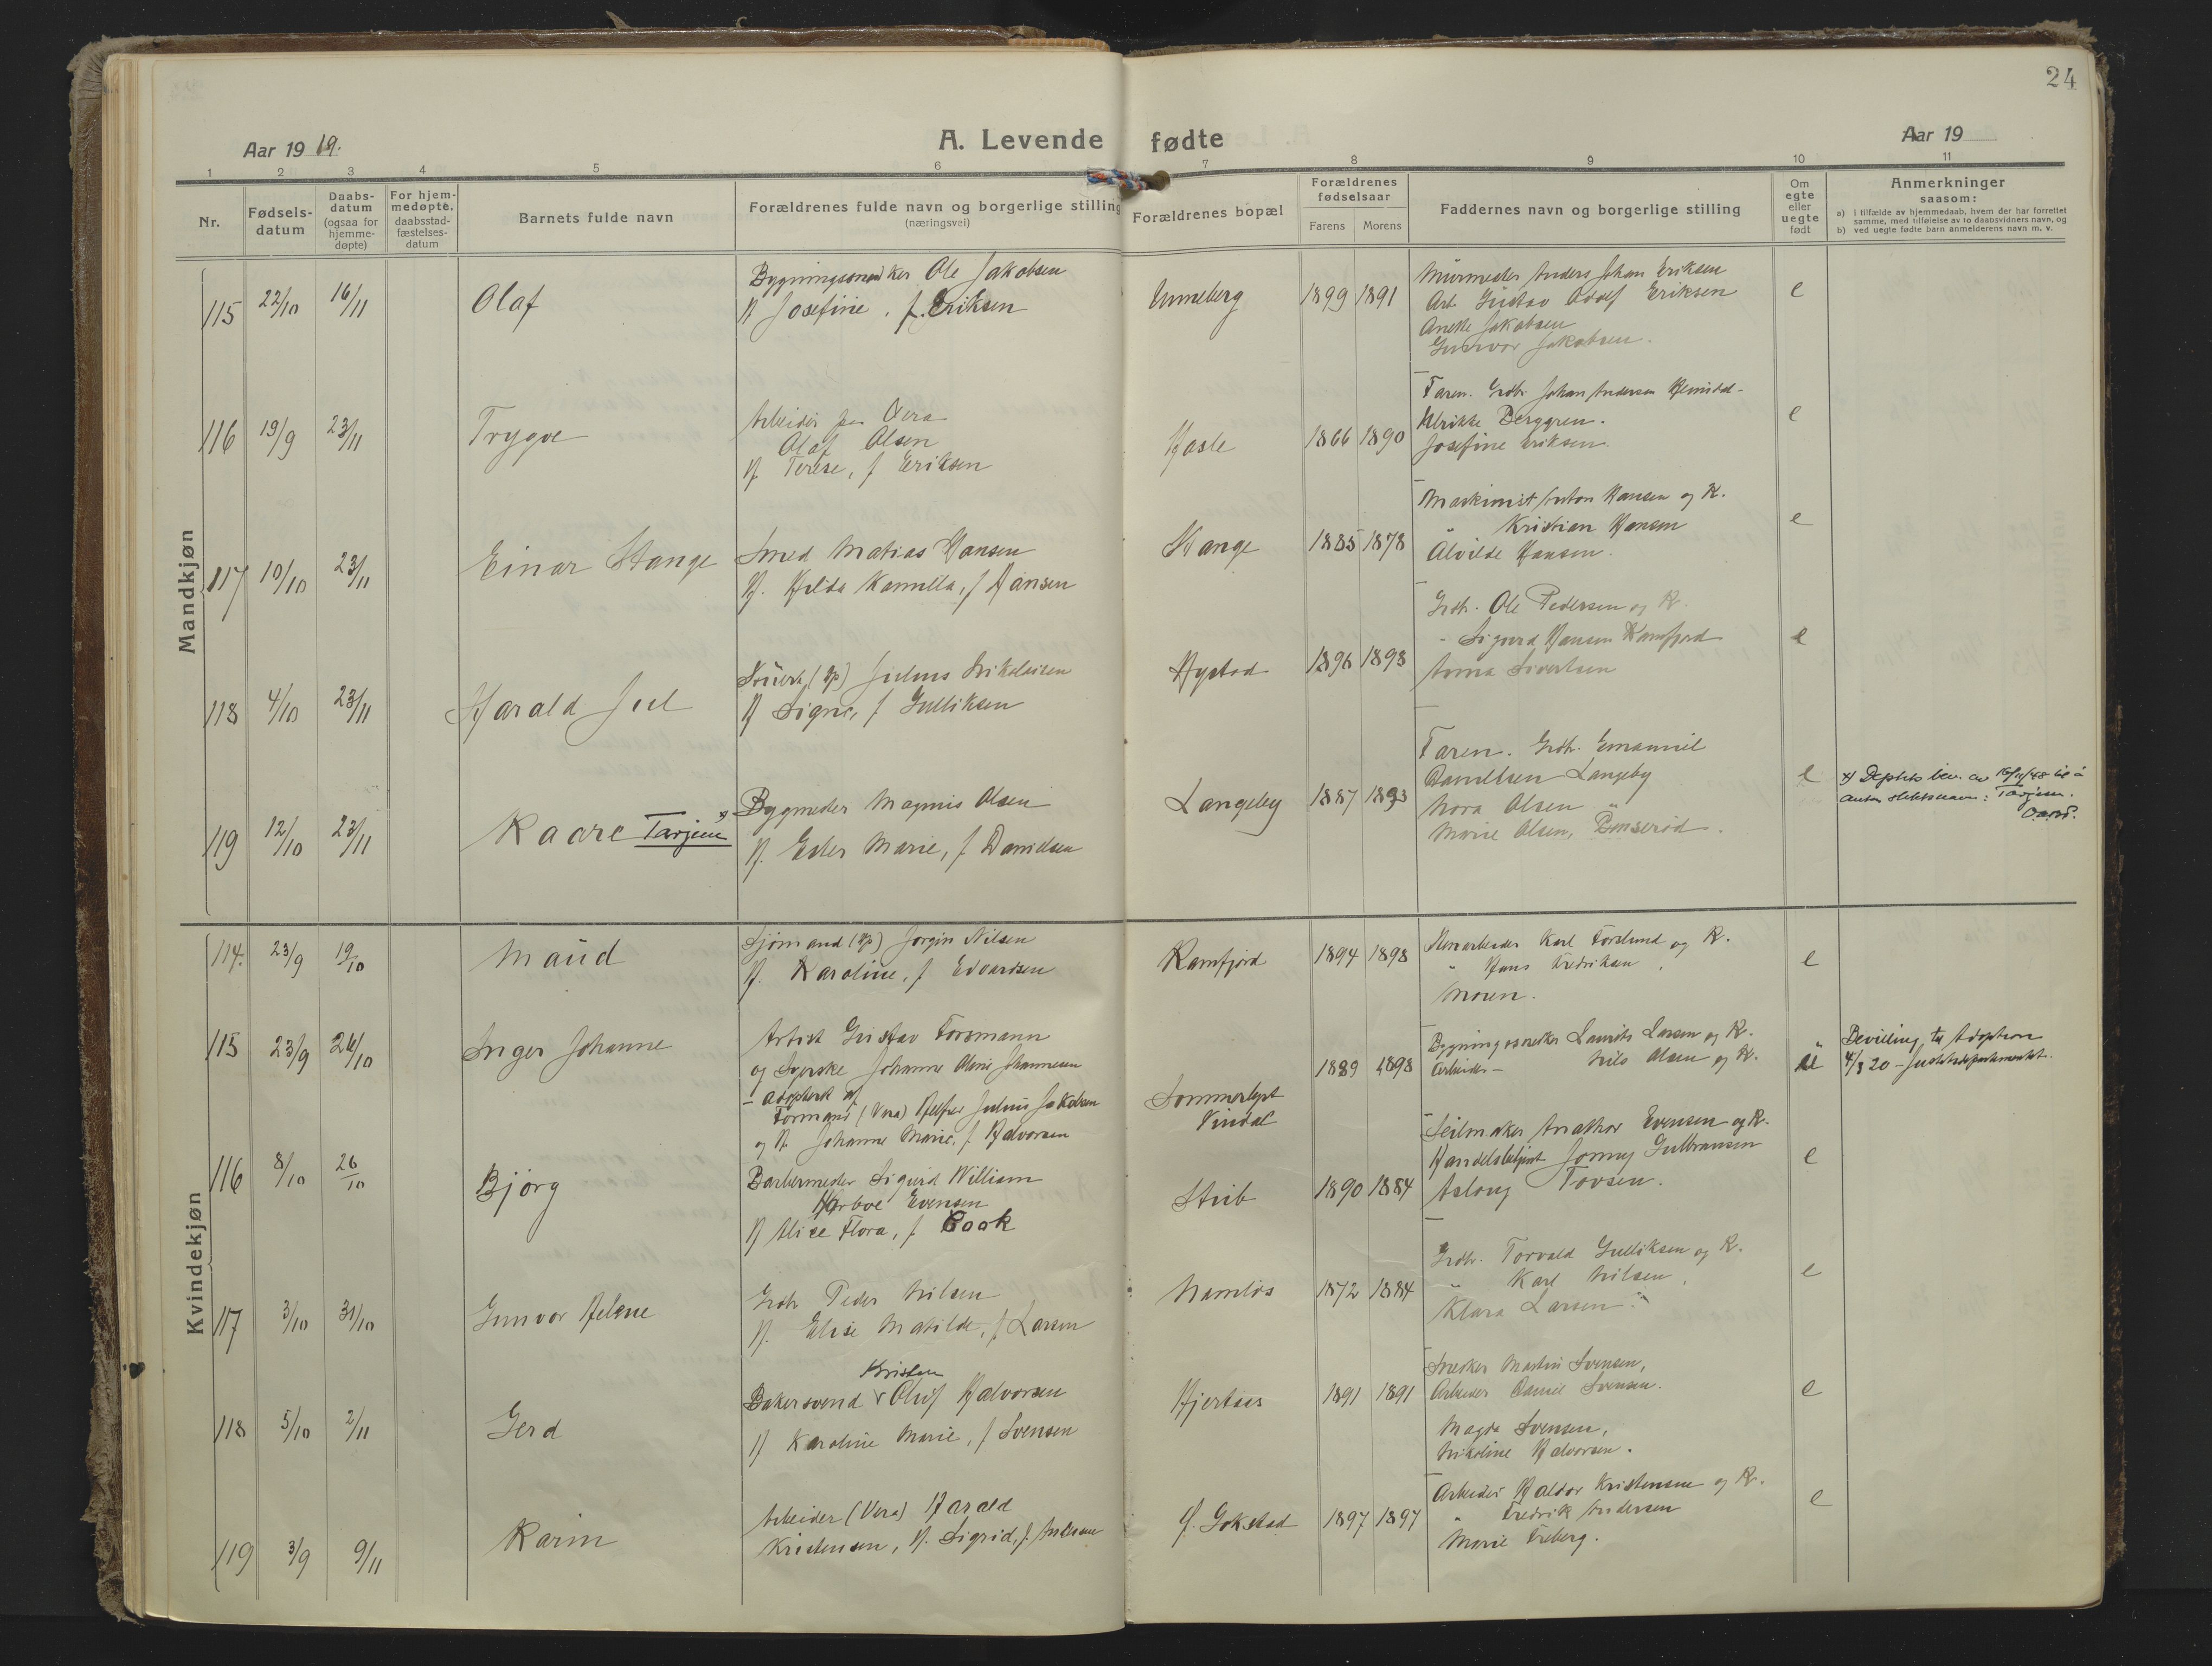 24
Aar 1919.
A. Levende fødte
Aar 19
1 2 3 4 5 6 7 8 9 10 11
Nr.
Fødsels-
datum
Daabs-
datum
(ogsaa for
hjemme-
døpte)
For hjem-
medøpte.
daabsstad-
fæstelses-
datum
Barnets fulde navn
Forældrenes fulde navn og borgerlige stilling
(næringsvei)
Forældrenes bopæl
Forældrenes
fødselsaar
Farens Morens
Faddernes navn og borgerlige stilling
Om
egte
eller
uegte
født
Anmerkninger
saasom:
a) i tilfælde av hjemmedaab, hvem der har forrettet
samme, med tilføielse av to daabsvidners navn, og
b) ved uegte fødte barn anmelderens navn m. v.
Mandkjøn
115 22/10 16/11 Olaf
Ole Jakobsen
H Josefine, f. Eriksen
Unneberg 1899 1891
Murmester Anders Johan Eriksen
Arb. Gustav Adolf Eriksen
Jakobsen
Gunvor Jakobsen.
e
116 19/9 23/11 Trygve
Arbeider paa Vera
Olaf Olsen
H. Terese, f Eriksen
Hasle 1866 1890
Faren. Grdbr. Johan Andersen
Ulrikke Berggren.
Josefine Eriksen.
e
117 10/10 23/11 Einar Stange
Smed Matias Hansen
H. Hilda Kamilla, f Hansen
Stange 1885 1878
Maskinist Anton Hansen og K.
" Kristian Hansen
Alvilde Hansen.
e
118 4/10 23/11 Harald Juel
Julius Nikolaisen
H Signe, f Gulliksen
Nystad 1896 1898
Grdbr. Ole Pedersen og K.
- Sigurd Hansen Ramfjord
Anna Sivertsen
e
119 12/10 23/11 Kaare Tarjem x)
Bygmester Magnus Olsen
H. Ester Marie, f Danielsen
Langeby 1887 1893
Faren. Grdbr. Emanuel
Danielsen Langeby
Nora Olsen "
Marie Olsen,
e
x) Deptets bev. av 16/11/48 til å
anta slektsnavn: Tarjem.
Kvindekjøn
114. 23/9 19/10 Maud
Sjømand Jørgin Nilsen
H. Karoline, f Edvardsen
Ramfjord 1894 1898
Karl Forslund og K.
" Hans Fredriksen
Moren.
e
115 23/9 26/10 Inger Johanne
Artist Gustav Forsmann
og Syerske Johanne Johannesen
- adopteret af
Formand (Vera) Julius Jakobsen
og H. Johanne Marie, f. Halvorsen
Sommerlyst
Vindal
1889 1898
Laurits Larsen og K.
Arbeider - Nils Olsen og K.
Bevilling til Adoption
4/3 20 - Justitsdepartementet.
116 8/10 26/10 Bjørg
Barbermester Sigurd William
Harboe Evensen
H Alice Flora, f. Cook
Stub 1890 1884
Seilmaker Evensen og K.
Handelsbetjent Jonny Gulbransen
Aslaug Tovsen.
e
117 3/10 31/10 Gunvor Helene
Grdbr Peder Nilsen
H. Elise Matilde, f Larsen
Namløs 1872 1884
Grdbr. Torvald Gulliksen og K.
" Karl Nilsen "
Klara Larsen.
e
118 5/10 2/11 Gerd
Kristen
Bakersvend v Oluf Halvorsen
H Karoline Marie, f Svensen
Hjertaas 1891 1891
Snekker Martin Svensen,
Arbeider Daniel Svensen.
Magda Svensen,
Nikoline Halvorsen.
e
119 3/9 9/11 Karin
Arbeider (Vera) Harald
Kristensen, H. Sigrid, f. Andersen
Gokstad 1897 1897
Arbeider Haldor Kristensen og K.
" Fredrik Andersen
Marie Freberg.
e